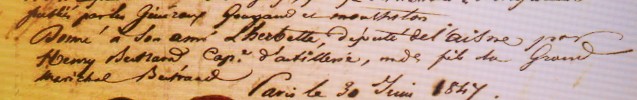 publiés par les Généraux Gourgaud et montholon
Donné à son ami Lherbette député de l'aisne, par
Henry Bertrand Capne d'artillerie, un des fils du Grand
maréchal Bertrand
Paris le 30 Juin 1847.